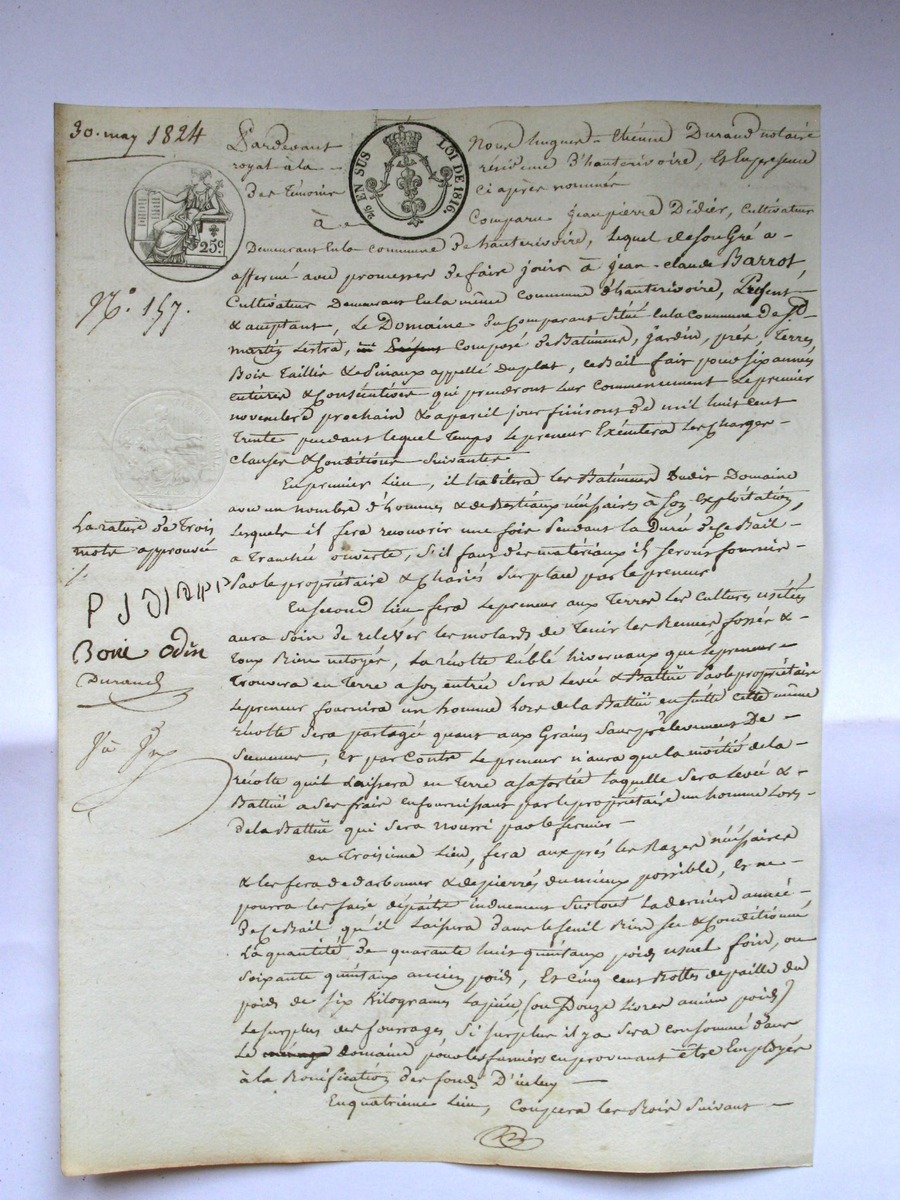 30. may 1824
Pardevant Nous hugues - Etienne Durand notaire
royal à la résidence d'hauterivoire, Et En presence
des temoins ci après nommés
à e Comparu Jean pierre Didier, Cultivateur
Demeurant En la commune d'hauterivoire, lequel de son Gré a -
affermé avec promesses de faire jouir à jean-claude Barrot,
Cultivateur Demeurant En la même commune d'hauterivoire, Présent
& acceptant, Le Domaine du Comparant Situé En la Commune de St
martin Lestra, Composé de Batiments, jardin, prés, Terres,
Bois Taillis & de Pinaux appellé Duplat, ce Bail fait pour six années
entières & Consécutives qui prendront leur commencement Le premier
novembre prochain & a pareil jour finiront de mil huit cent
Trente pendant lequel Temps Le preneur Exécutera Les Charges
clauses & Conditions Suivantes
En premier Lieu, il habitera Les Batiments Dudit Domaine
avec un nombre d'hommes & de Bestiaux nécessaires à Son Exploitation,
Lesquels il fera recouvrir une fois Pendant la Durée de ce Bail -
a tranchée ouverte, S'il faut des matériaux ils seront fournis -
Par le propriétaire & Chariés Sur place par le preneur
En second Lieu fera Le preneur aux Terres Les Cultures usitées
aura Soin de relever les molards de Tenir les fossés &
Tous Bien netoyés, La récolte En blé hivernaux que Le preneur -
Trouvera en Terre a son entrée Sera Levée & Battue Par le propriétaire
Le preneur fournira un homme lors de la Battue En suite cette même
récolte Sera partagée quant aux Grains Sans prélevement De -
Semences, Et par Contre Le preneur n'aura que la moitié de la -
récolte qu'il Laissera en Terre a sa sortie laquelle Sera Levée & -
Battue a Ses frais en fournissant par le propriétaire un homme Lors -
de la Battue qui Sera nourri par le fermier -
en Troisième Lieu, fera aux prés les Razes nécessaires
& les fera dedarbonner & depierrés du mieux possible, Et ne -
pourra les faire dépaitre induement Surtout La derniere année -
de ce Bail qu'il Laissera dans le fenil Bien sec & Conditionné
La quantité de quarante huit quintaux poids usuel foin, ou
Soixante quintaux ancien poids, Et Cinq cent Bottes de paille du
poids de Six Kilogrames La pièce, (ou Douze Livres ancien poids)
Le surplus des fourrages Si surplus il y a Sera consommé dans
Le domaine pour les fumiers en provenant être Employés
à la Bonification des fonds D'icelui -
En quatrieme Lieu, Coupera les Bois Suivant -
25 c
⅖ EN SUS LOI DE 1816.
N.° 157.
La rature de Trois
mots approuvée
P J DIDIER
Boni Odin
Durand